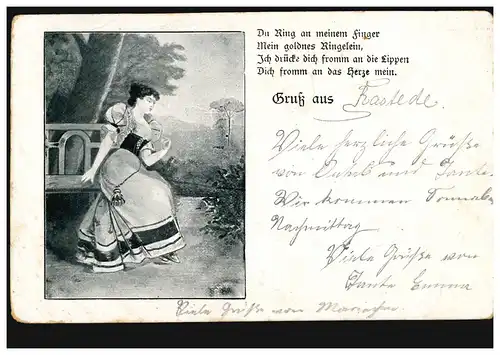 Du Ring an meinem Finger
Mein goldnes Ringelein,
Ich drücke dich fromm an die Lippen
Dich fromm an das Herze mein.
Gruß aus Rastede.
Viele herzliche Grüße
von Onkel und Tante.
Wir kommen
Nachmittag
Viele Grüße von
Tante Emma
Viele Grüße von